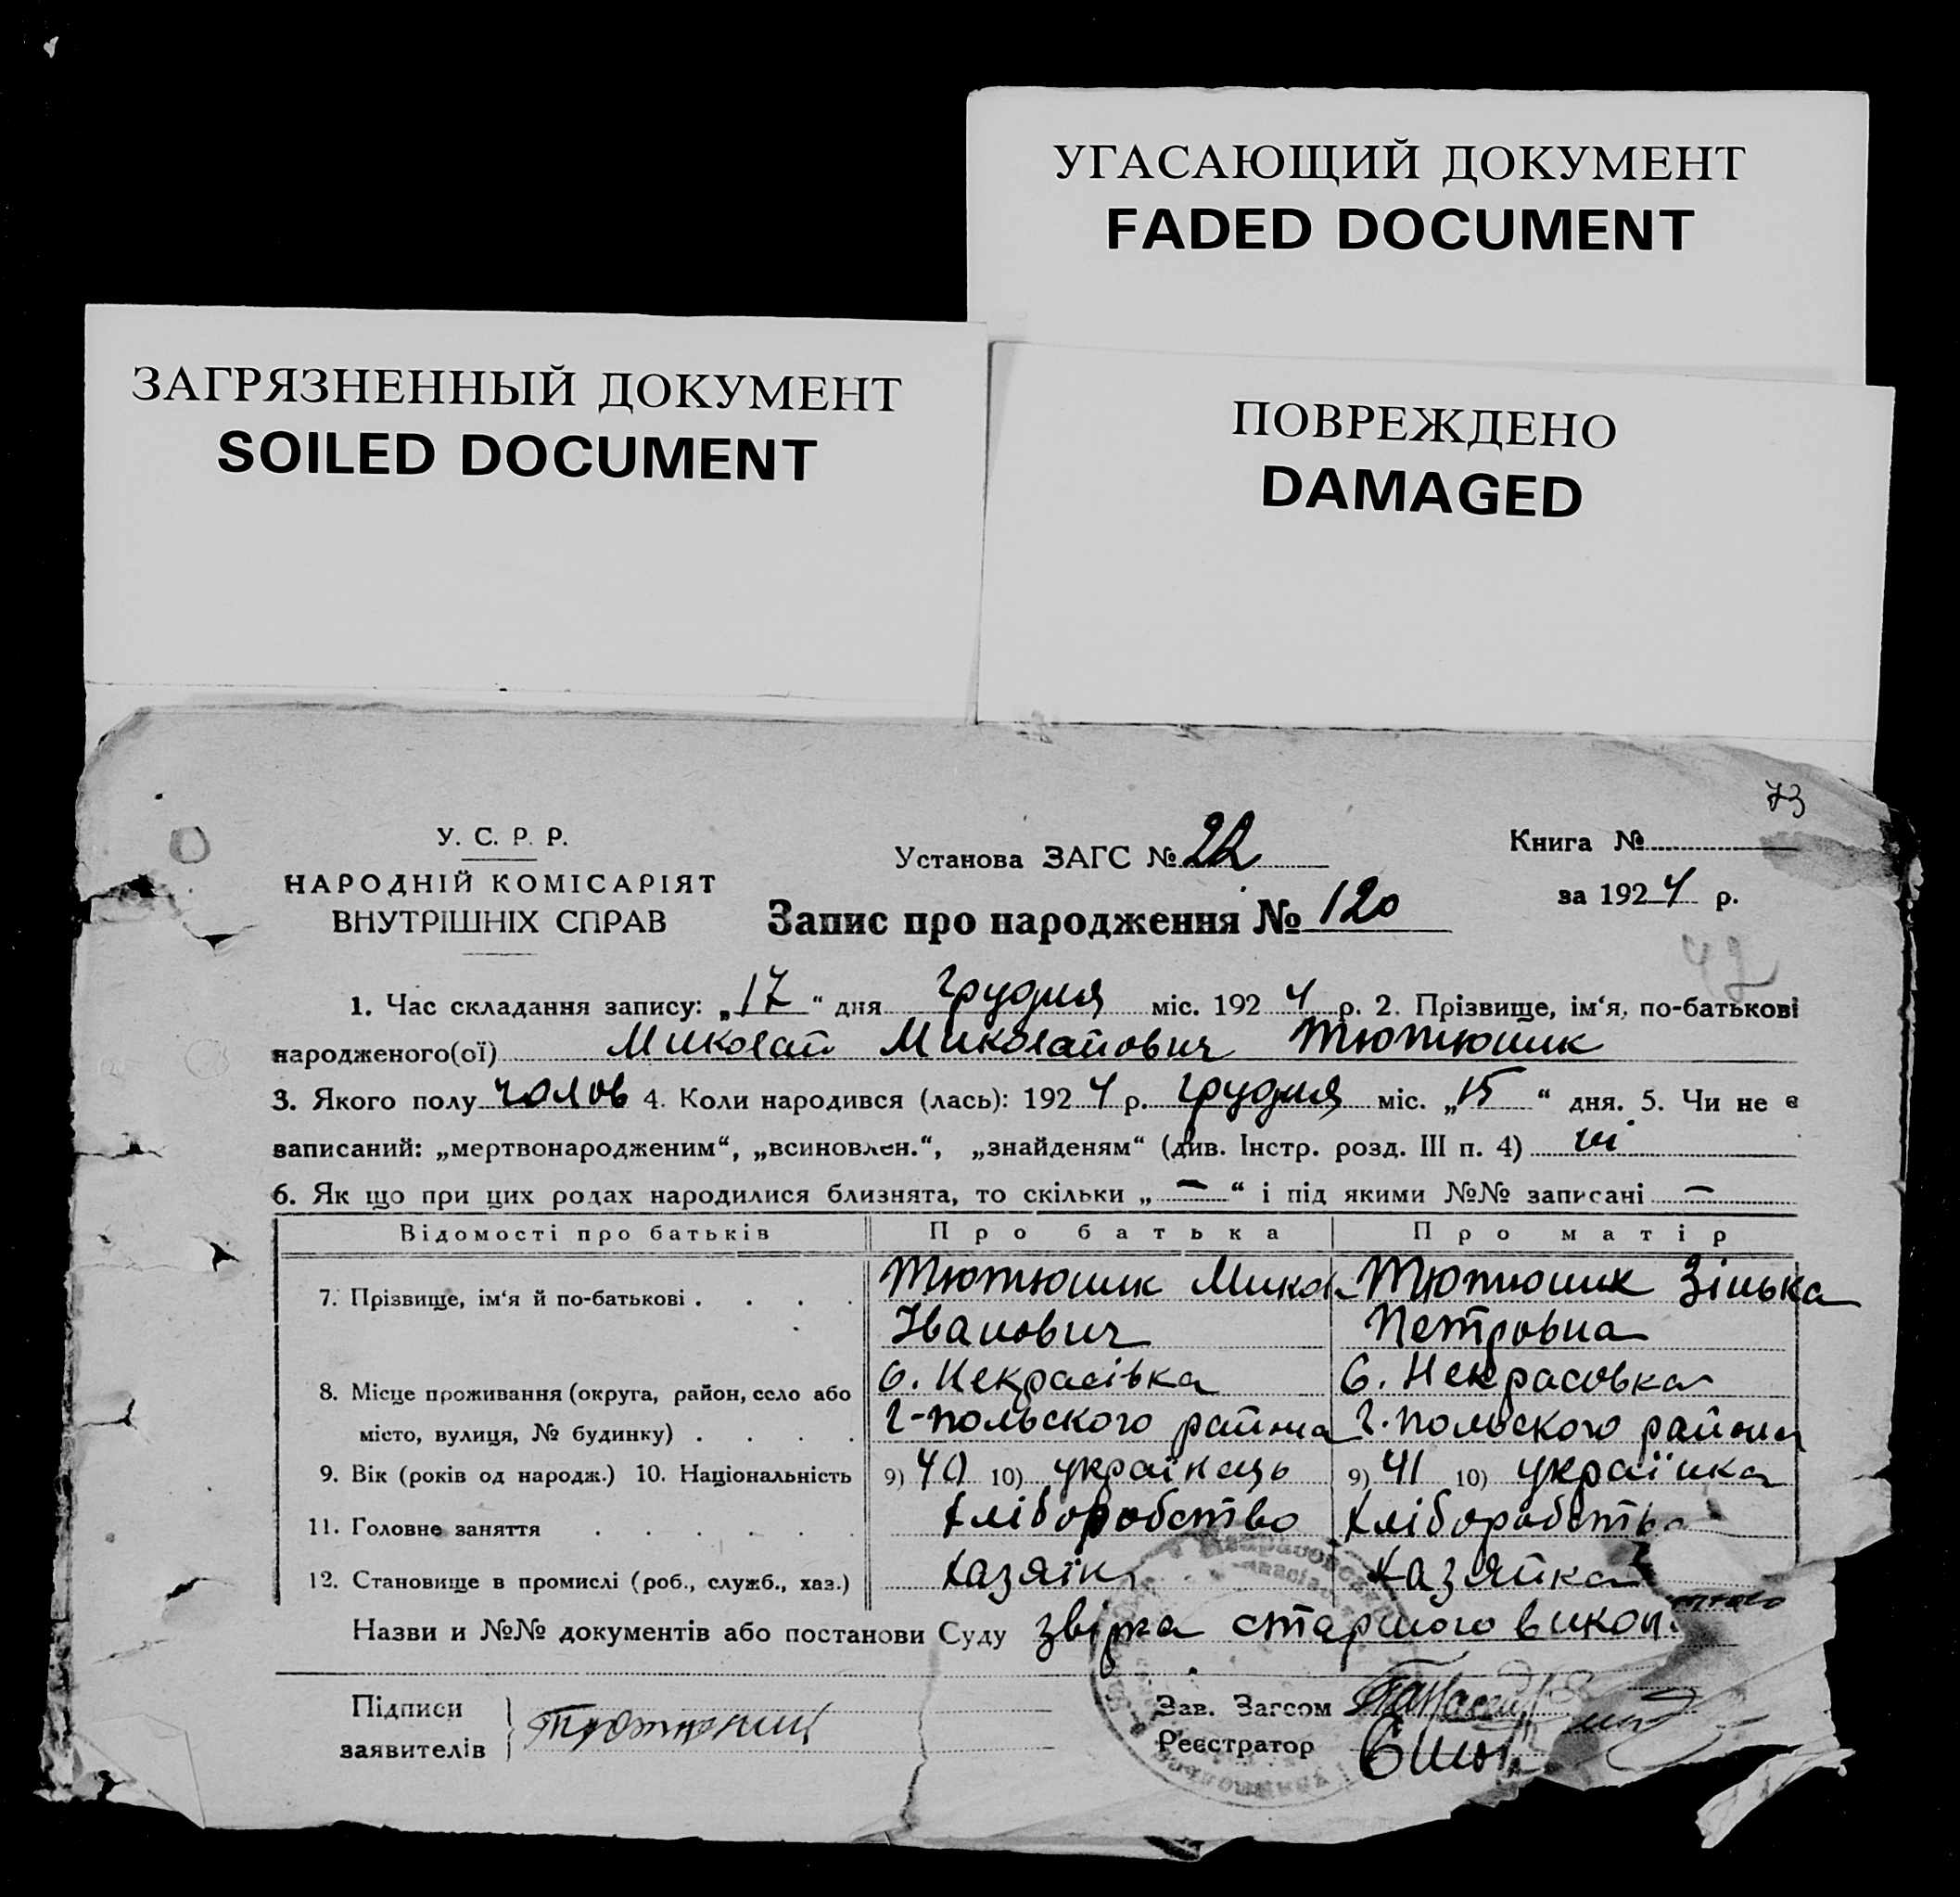 УГАСАЮЩИЙ ДОКУМЕНТ
FADED DOCUMENT
ЗАГРЯЗНЕННЫЙ ДОКУМЕНТ
SOILED DOCUMENT
ПОВРЕЖДЕНО
DAMAGED
73
У. С. Р. Р.
НАРОДНІЙ КОМІСАРІЯТ
ВНУТРІШНІХ СПРАВ
Установа ЗАГС № 22
Книга №
за 1924 р.
Запис про народження № 120
42
1. Час складання запису: „17“ дня грудня міс. 1924 р. 2. Прізвище, ім‘я, по-батькові
народженого(ої) Миколай Миколайович Тютюник
3. Якого полу чолов 4. Коли народився (лась): 1924 р. грудня міс. „15“ дня. 5. Чи не є
записаний: „мертвонародженим“, „всиновлен.“, „знайденям“ (див. Інстр. розд. III п. 4) ні
6. Як що при цих родах народилися близнята, то скільки „—“ і під якими №№ записані —
Відомості про батьків Про батька Про матір
7. Прізвище, ім‘я й по-батькові . . . . Тютюник Микола Тютюник Зінька
Іванович Петровна
8. Місце проживання (округа, район, село або С. Некрасівка С. Некрасовка
місто, вулиця, № будинку) . . . . Г-польского района Г-польского района
9. Вік (років од народж.) 10. Національність 9) 40 10) українець 9) 41 10) українка
11. Головне заняття . . . . . . хліборобство хліборобство
12. Становище в промислі (роб., служб., хаз.) хазяїн хазяйка
Назви и №№ документів або постанови Суду звірка старшого викон
Підписи
заявителів Тютюник
Зав. Загсом
Реєстратор